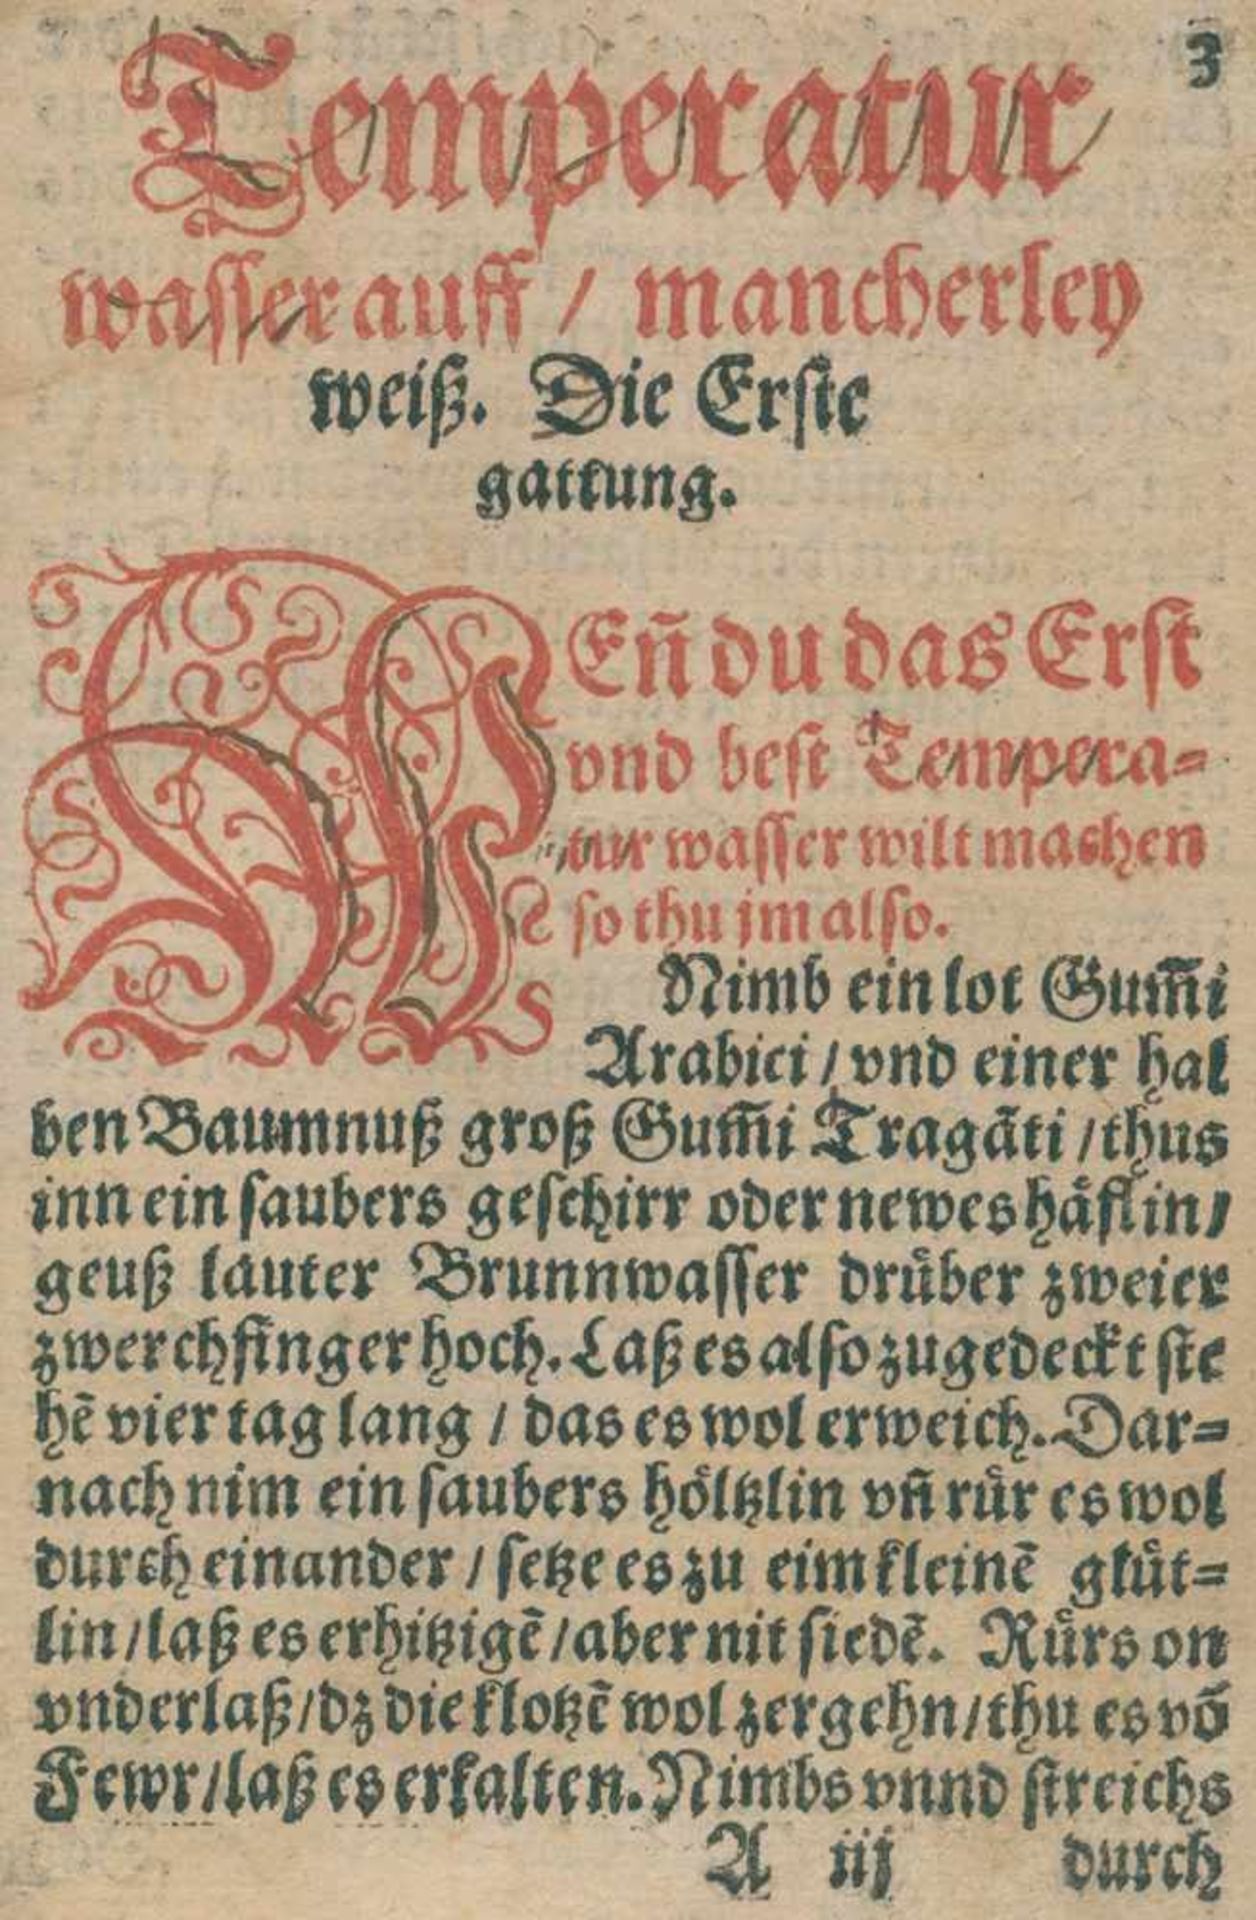 3
Temperatur
wasser auff / mancherley
weiß. Die Erste
gattung.
WEñ du das Erst
vnd best Tempera-
tur wasser wilt machen
so thu jm also.
Nimb ein lot Gum̃i
Arabici / vnd einer hal
ben Baumnuß groß Gum̃i Tragãti / thus
inn ein saubers geschirr oder newes haͤflin /
geuß lauter Brunnwasser druͤber zweier
zwerchfinger hoch. Laß es also zugedeckt ste
hẽ vier tag lang / das es wol erweich. Dar-
nach nim ein saubers hoͤltzlin vñ ruͤr es wol
durch einander / setze es zu eim kleinẽ gluͤt-
lin / laß es erhitzigẽ / aber nit siedẽ. Ruͤrs on
vnderlaß / dz die klotzẽ wol zergehn / thu es võ
Fewr / laß es erkalten. Nimbs vnnd streichs
A iij durch